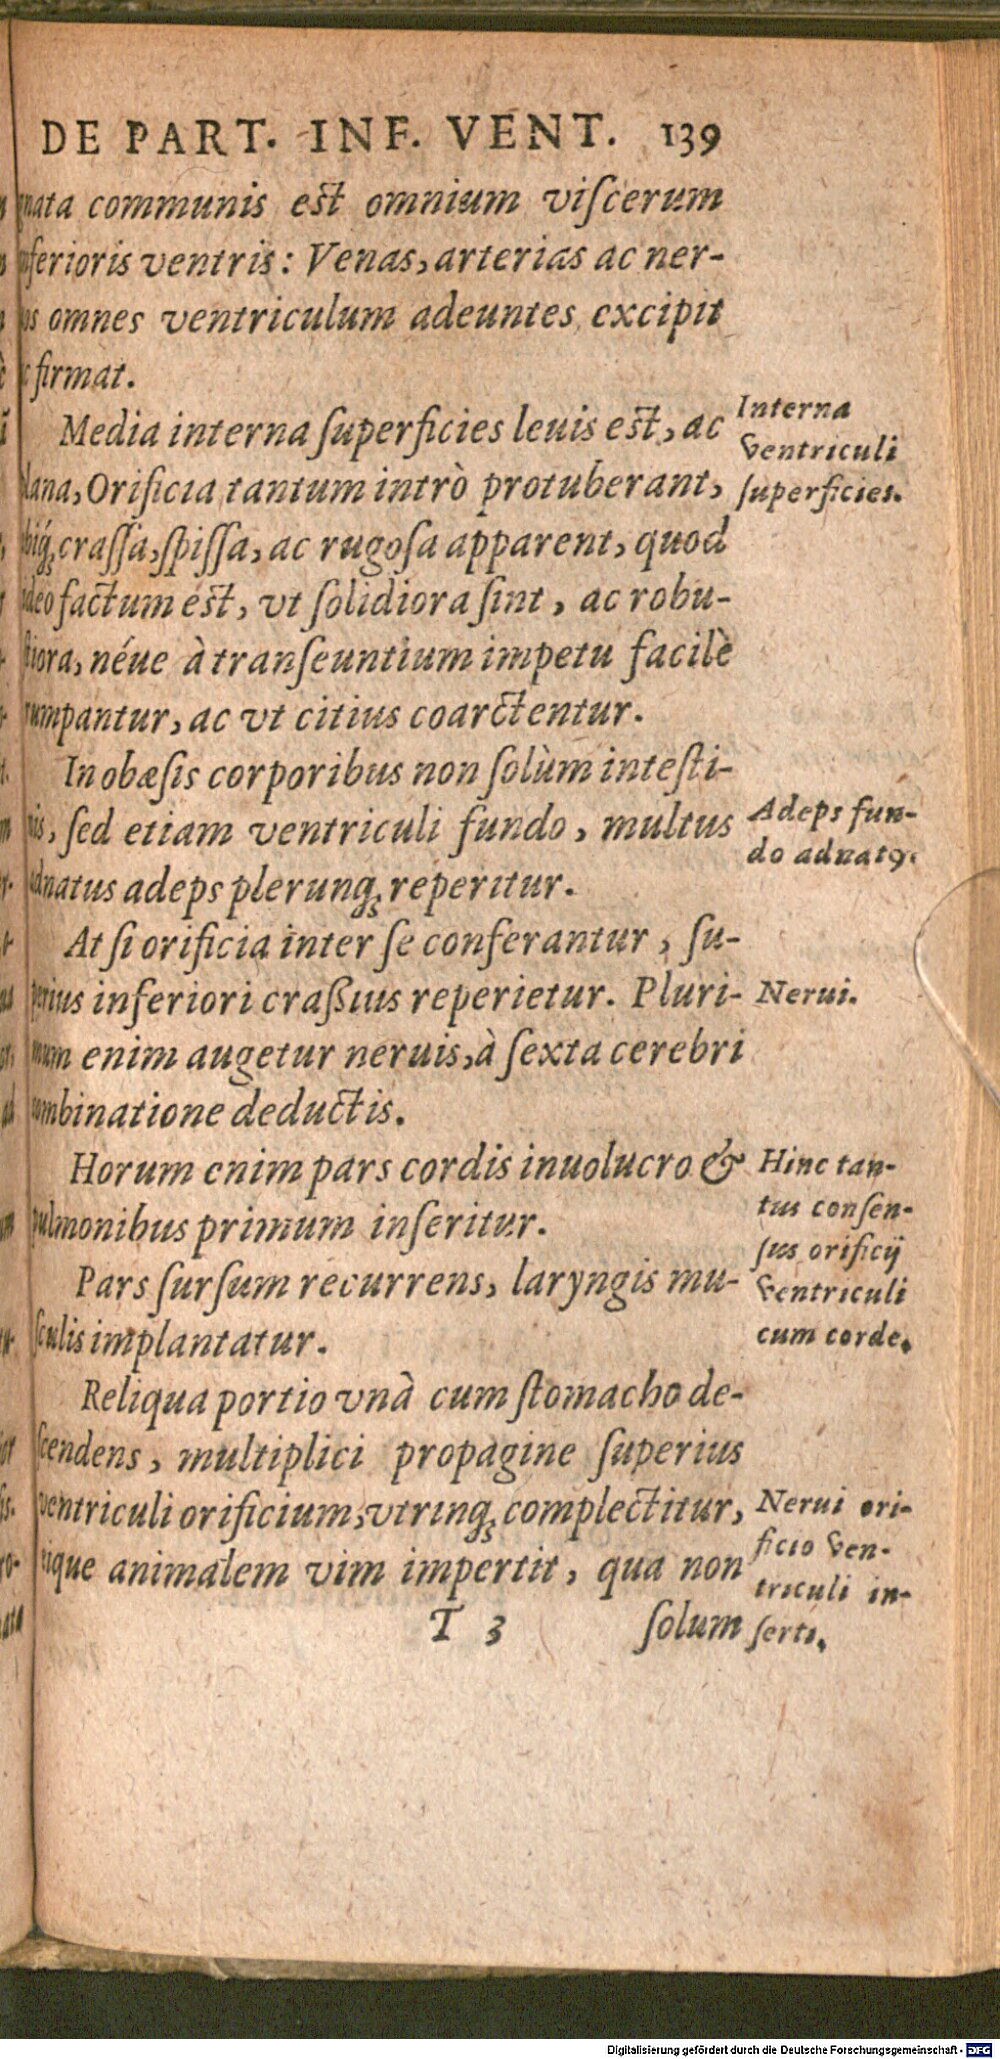 DE PART. INF. VENT. 139
nata communis est omnium viſcerum
nferioris ventris: Venas, arterias ac ner-
os omnes ventriculum adeuntes excipit
firmat.
Media interna ſuperficies leuis est, ac
lana, Orificia tantum intrò protuberant,
biq́; craſſa, ſpiſſa, ac rugoſa apparent, quod
ideo factum est, vt ſolidiora ſint, ac robu-
ſtiora, néue à tranſeuntium impetu facilè
rumpantur, ac vt citius coarctentur.
In obæſis corporibus non ſolùm inteſti-
nis, ſed etiam ventriculi fundo, multus
adnatus adeps plerunq; reperitur.
At ſi orificia inter ſe conferantur, ſu-
perius inferiori craßius reperietur. Pluri-
mum enim augetur neruis, à ſexta cerebri
ombinatione deductis.
Horum enim pars cordis inuolucro &
pulmonibus primum inſeritur.
Pars ſurſum recurrens, laryngis mu-
ſculis implantatur.
Reliqua portio vnà cum ſtomacho de-
ſcendens, multiplici propagine ſuperius
ventriculi orificium, vtrinq; complectitur,
ique animalem vim impertit, qua non
T 3 ſolum
Interna
Ventriculi
ſuperficies.
Adeps fun-
do adnatꝰ.
Nerui.
Hinc tan-
tus conſen-
ſus orificij
Ventriculi
cum corde.
Nerui ori-
ficio Ven-
triculi in-
ſerti.
Digitalisierung gefördert durch die Deutsche Forschungsgemeinschaft - DFG